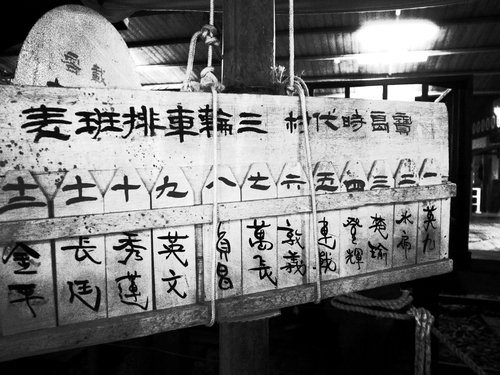 寶島時代村 三輪車排班表
一 二 三 四 五 六 七 八 九 十 十一 十二
英九 水扁 楚瑜 登輝 連戰 敦義 萬長 貞昌 英文 秀蓮 長廷 金平